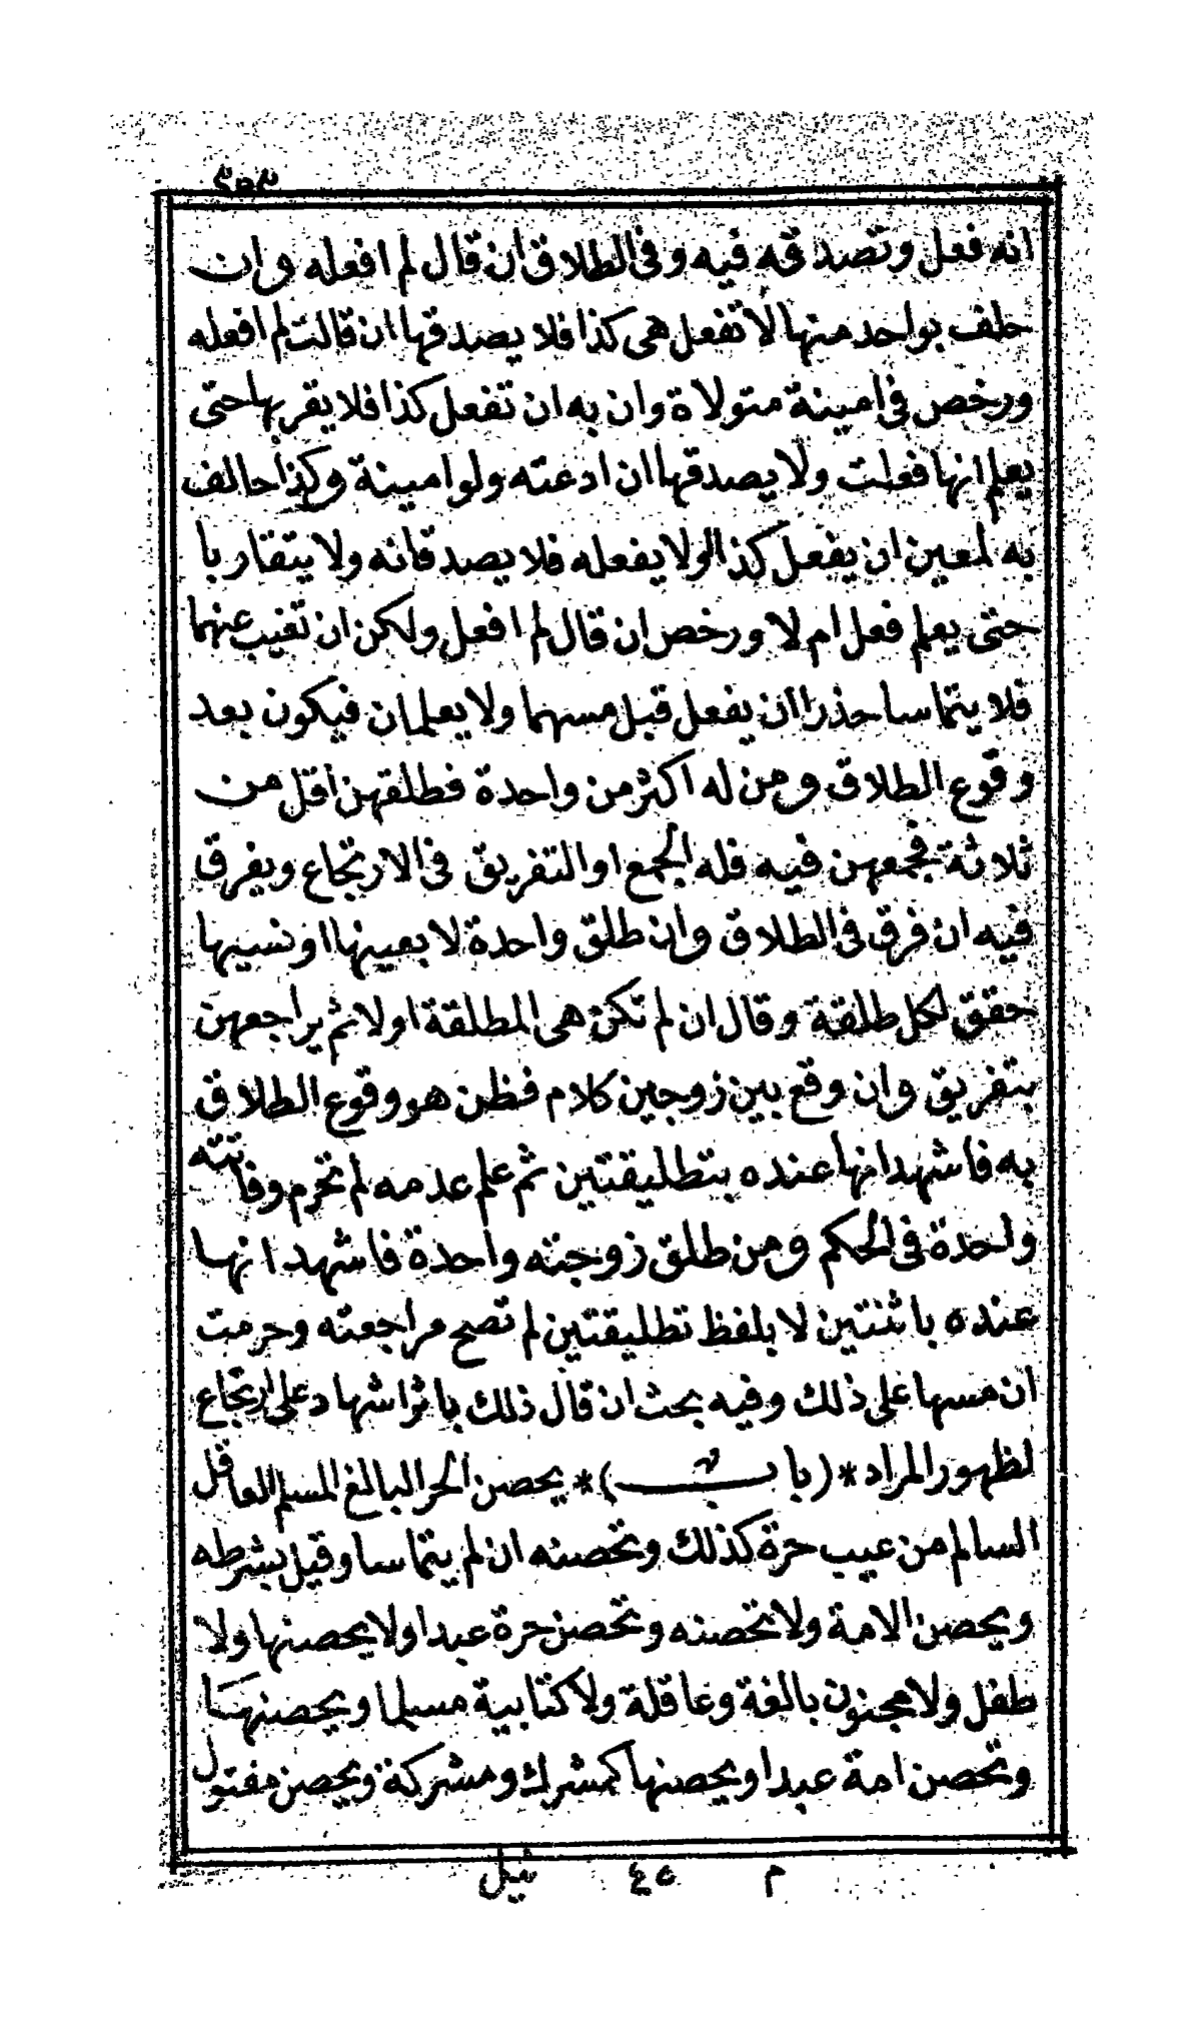 ٣٥٣
انه فعل وتصدقه فيه وفى الطلاق ان قال لم افعله وان
حلف بواحد منها لا تفعل هى كذا فلا يصدقها ان قالت لم افعله
ورخص فى امينة متولاة وان به ان تفعل كذا فلا يقربها حتى
يعلم انها فعلت ولا يصدقها ان ادعته ولو امينة وكذا حالف
به لمعين ان يفعل كذا او لا يفعله فلا يصدقانه ولا يتقاربا
حتى يعلم فعل ام لا ورخص ان قال لم افعل ولكن ان تغيب عنهما
فلا يتماسا حذرا ان يفعل قبل مسهما ولا يعلمان فيكون بعد
وقوع الطلاق ومن له اكثر من واحدة فطلقهن اقل من
ثلاثة فجمعهن فيه فله الجمع او التفريق فى الارتجاع ويفرق
فيه ان فرق فى الطلاق وان طلق واحدة لا بعينها او نسيها
حقق لكل طلقة وقال ان لم تكن هى المطلقة اولا ثم يراجعهن
بتفريق وان وقع بين زوجين كلام فظن هو وقوع الطلاق
به فاشهد انها عنده بتطليقتين ثم علم عدمه لم تحرم وفاتته
واحدة فى الحكم ومن طلق زوجته واحدة فاشهد انها
عنده باثنتين لا بلفظ تطليقتين لم تصح مراجعته وحرمت
ان مسها على ذلك وفيه بحث ان قال ذلك باثر اشهاد على ارتجاع
لظهور المراد *(باب)* يحصن الحر البالغ المسلم العاقل
السالم من عيب حرة كذلك وتحصنه ان لم يتماسا وقيل بشرطه
ويحصن الامة ولا تحصنه وتحصن حرة عبدا ولا يحصنها ولا
طفل ولا مجنون بالغة وعاقلة ولا كتابية مسلما ويحصنها
وتحصن امة عبدا ويحصنها كمشرك ومشركة ويحصن مفتول
م ٤٥ نيل